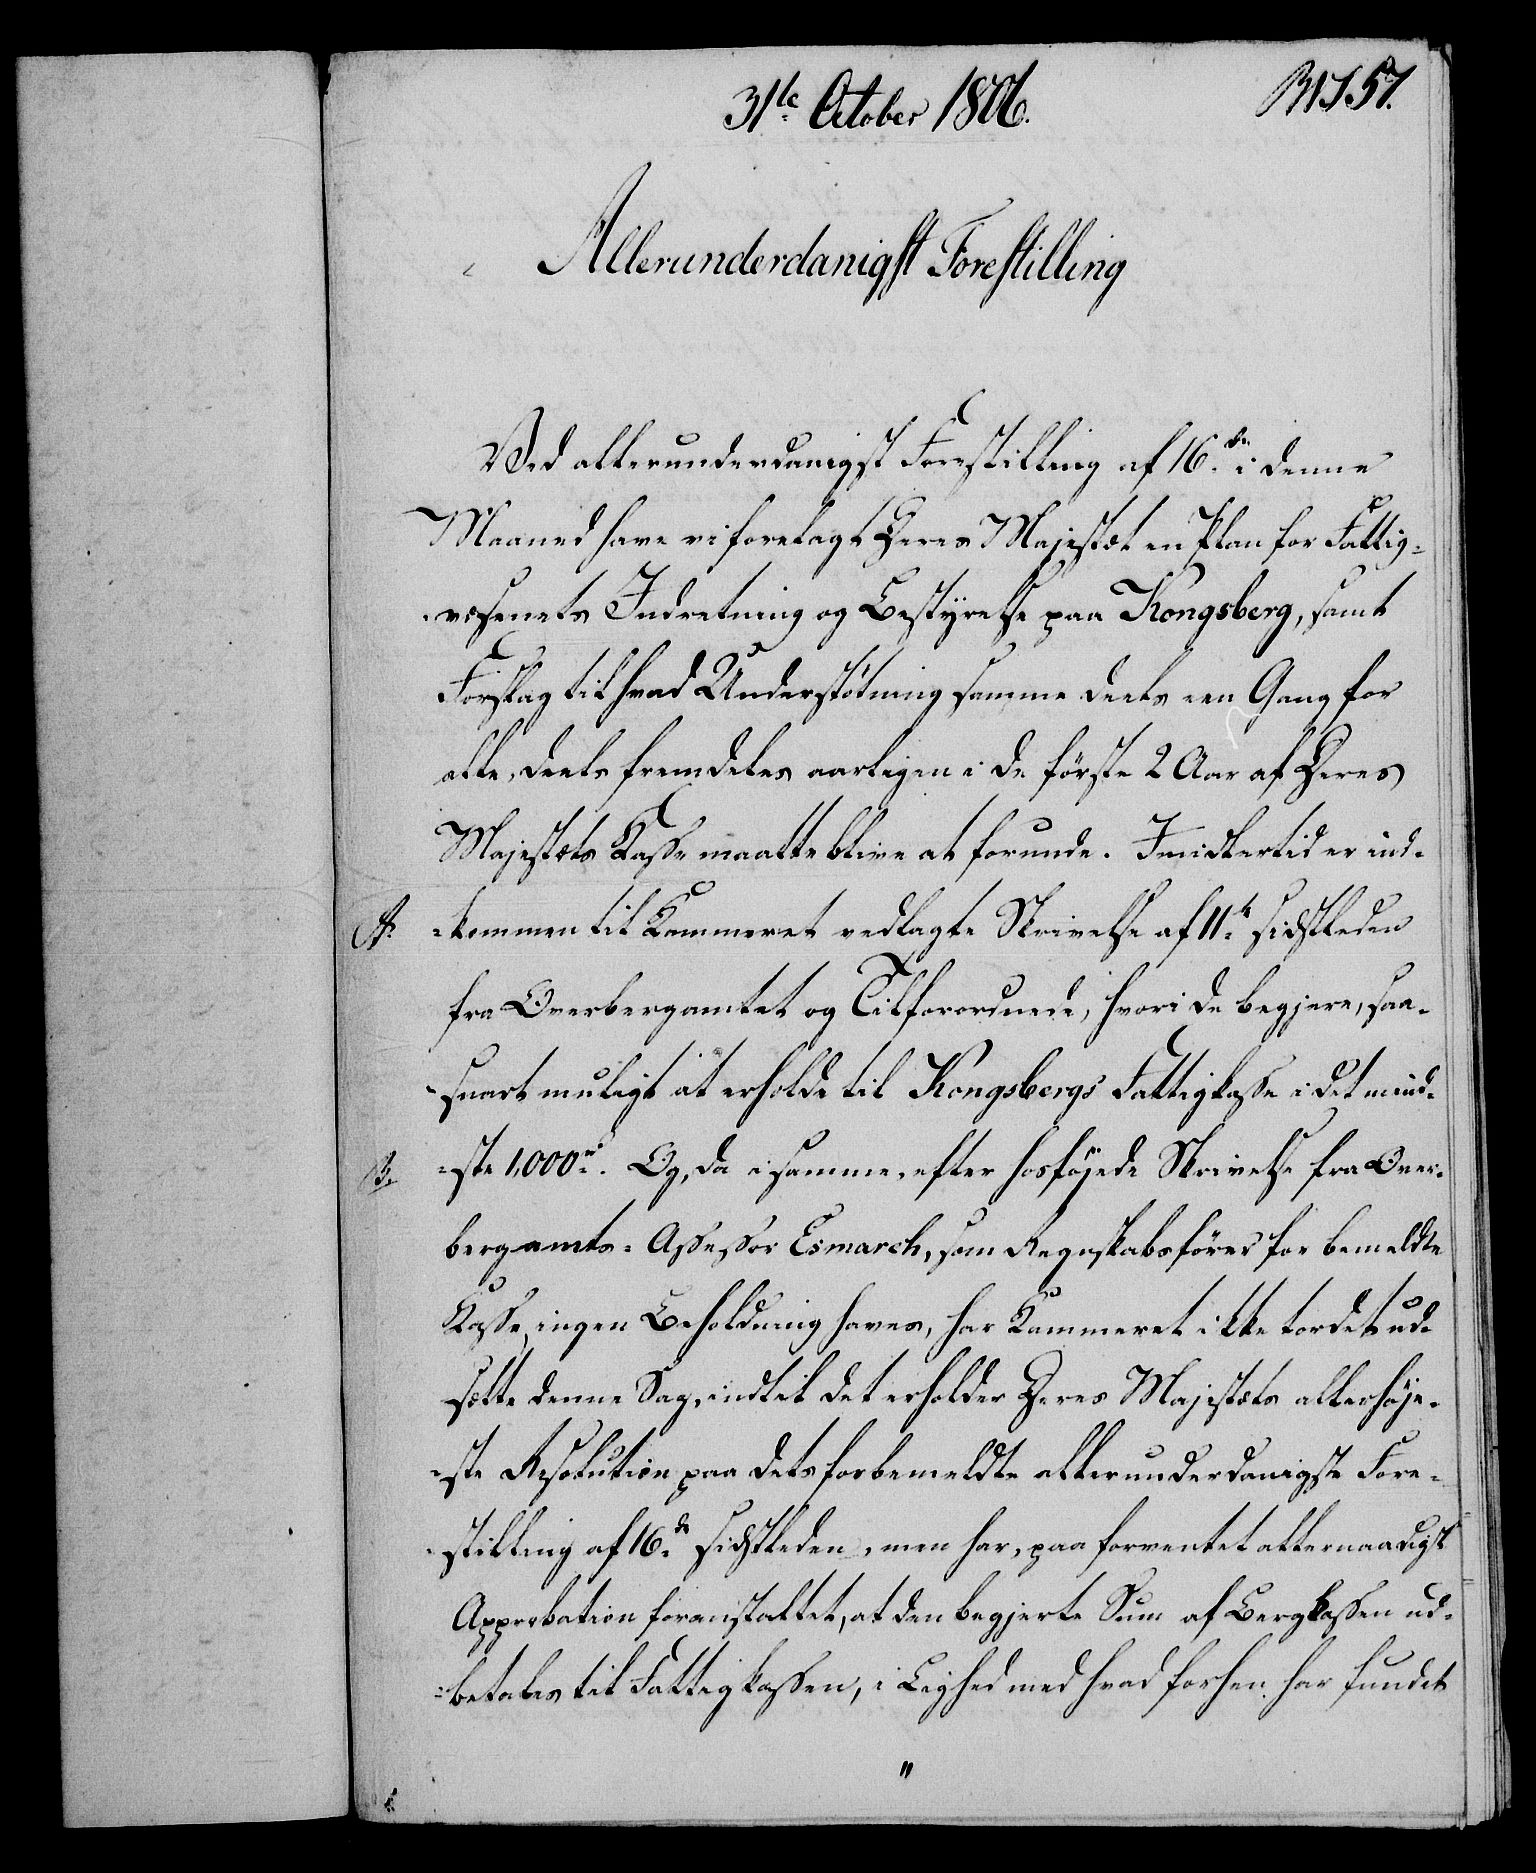 31te October 1806.
57.
Allerunderdanigst Forestilling
Ved allerunderdanigst Forestilling af 16.de i denne
Maaned have vi forelagt Deres Majestæt en Plan for Fattig=
=væsenets Indretning og Bestÿrelse paa Kongsberg, samt
Forslag til hvad Understøtning samme deels een Gang for
alle, deels fremdeles aarligen i de første 2 Aar af Deres
Majestæts Kasse maatte blive at forunde. Imidlertid er ind=
A. =kommen til Kammeret vedlagte Skrivelse af 11te sidstleden
fra Overbergamtet og Tilforordnede, hvori de begjere, saa=
=snart muligt at erholde til Kongsbergs Fattigkasse i det mind=
B. =ste 1,000 rd. Og, da i samme, efter hosføjede Skrivelse fra Over=
bergamts=Assessor Esmarch, som Regnskabsfører for bemeldte
Kasse, ingen Beholdning haves, har Kammeret ikke tordet ud=
sætte denne Sag, indtil det erholder Deres Majestæts allerhøje=
=ste Resolution paa dets forbemeldte allerunderdanigste Fore=
=stilling af 16.de sidstleden, men har, paa forventet allernaadigst
Approbation foranstaltet, at den begjerte Sum af Bergkassen ud=
=betales til Fattigkassen, i Liighed med hvad forhen har fundet
"